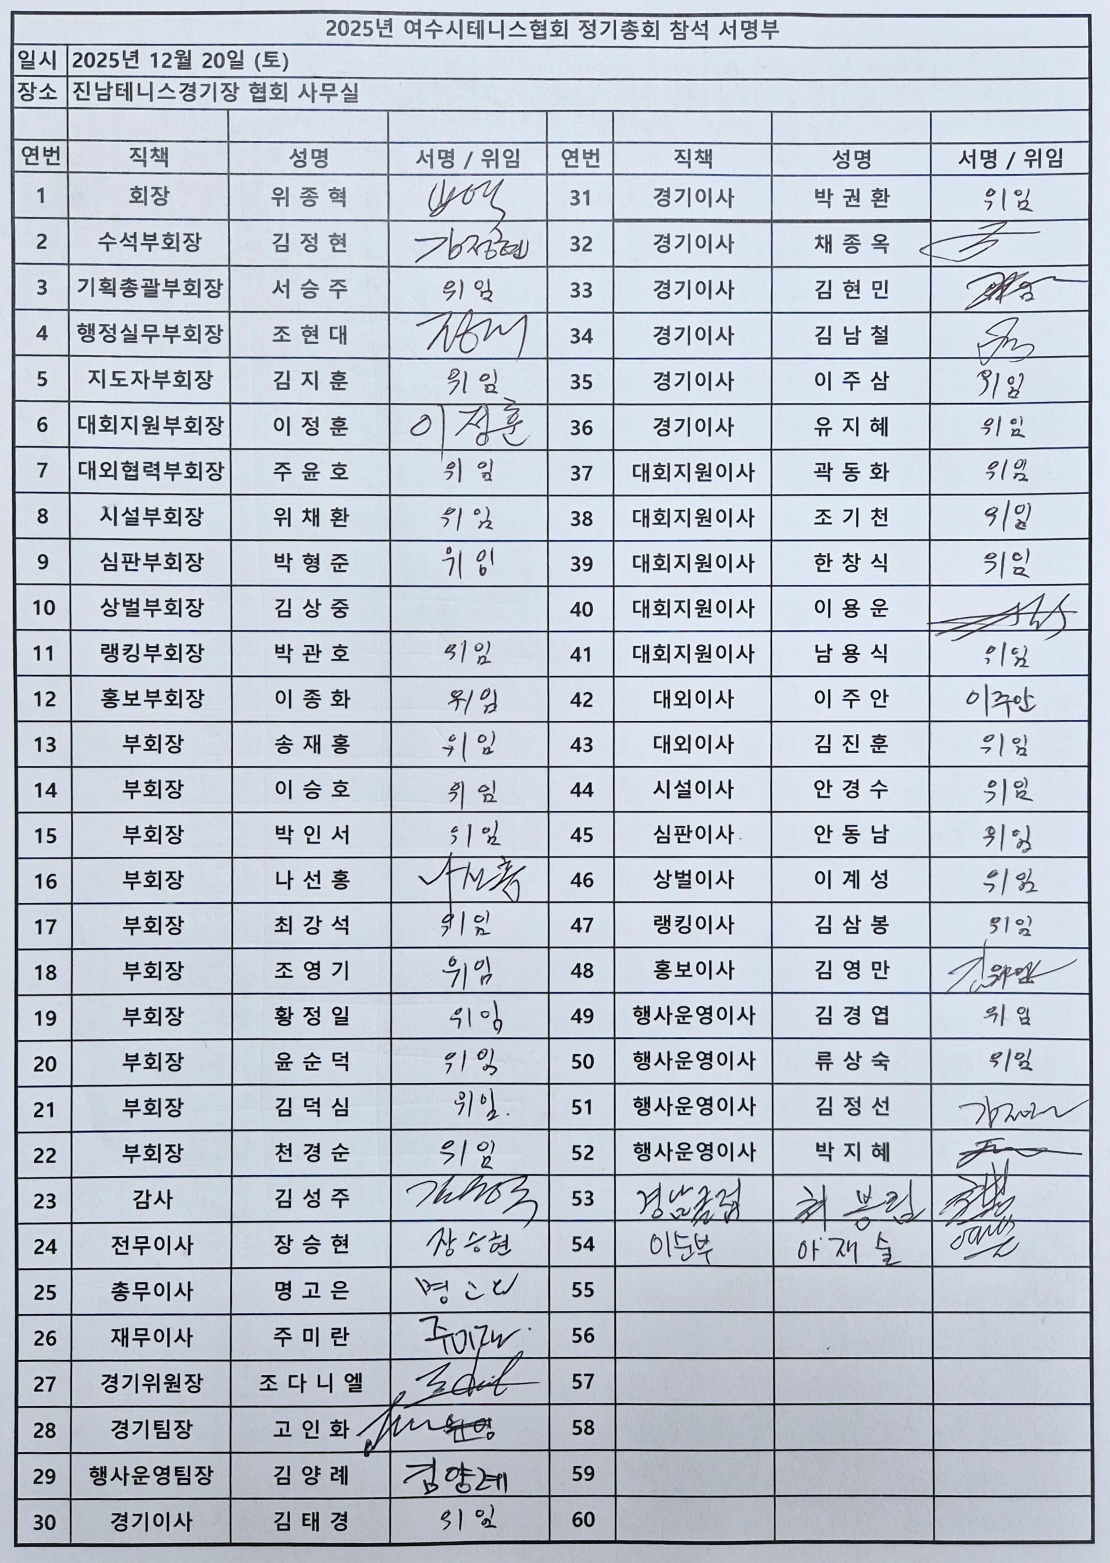 2025년 여수시테니스협회 정기총회 참석 서명부
일시 2025년 12월 20일 (토)
장소 진남테니스경기장 협회 사무실
연번 직책 성명 서명 / 위임 연번 직책 성명 서명 / 위임
1 회장 위종혁 31 경기이사 박권환 위임
2 수석부회장 김정현 김정현 32 경기이사 채종옥
3 기획총괄부회장 서승주 위임 33 경기이사 김현민
4 행정실무부회장 조현대 34 경기이사 김남철
5 지도자부회장 김지훈 위임 35 경기이사 이주삼 위임
6 대회지원부회장 이정훈 이정훈 36 경기이사 유지혜 위임
7 대외협력부회장 주윤호 위임 37 대회지원이사 곽동화 위임
8 시설부회장 위채환 위임 38 대회지원이사 조기천 위임
9 심판부회장 박형준 위임 39 대회지원이사 한창식 위임
10 상벌부회장 김상중 40 대회지원이사 이용운
11 랭킹부회장 박관호 위임 41 대회지원이사 남용식 위임
12 홍보부회장 이종화 위임 42 대외이사 이주안 이주안
13 부회장 송재홍 위임 43 대외이사 김진훈 위임
14 부회장 이승호 위임 44 시설이사 안경수 위임
15 부회장 박인서 위임 45 심판이사 안동남 위임
16 부회장 나선홍 나선홍 46 상벌이사 이계성 위임
17 부회장 최강석 위임 47 랭킹이사 김삼봉 위임
18 부회장 조영기 위임 48 홍보이사 김영만
19 부회장 황정일 위임 49 행사운영이사 김경엽 위임
20 부회장 윤순덕 위임 50 행사운영이사 류상숙 위임
21 부회장 김덕심 위임. 51 행사운영이사 김정선
22 부회장 천경순 위임 52 행사운영이사 박지혜
23 감사 김성주 53
24 전무이사 장승현 장승현 54 이순부
25 총무이사 명고은 명고은 55
26 재무이사 주미란 주미란 56
27 경기위원장 조다니엘 57
28 경기팀장 고인화 58
29 행사운영팀장 김양례 김양례 59
30 경기이사 김태경 위임 60